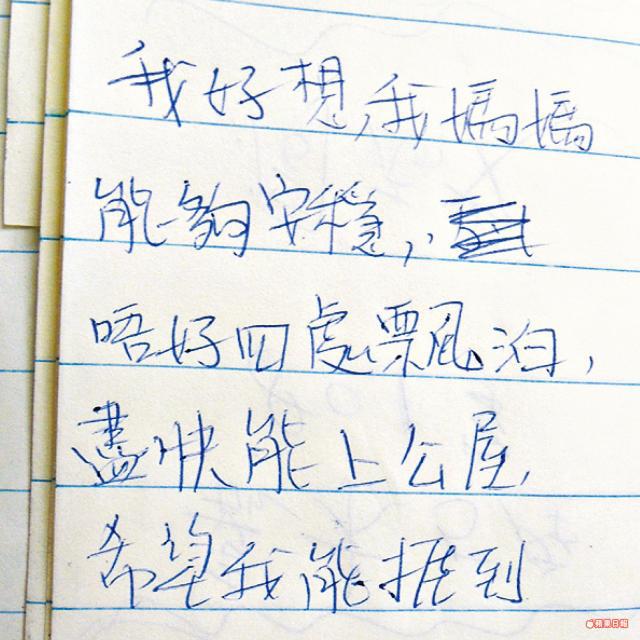 我好想,我媽媽
能夠安穩,
唔好四處飄泊,
盡快能上公屋,
希望我能捱到
蘋果日報